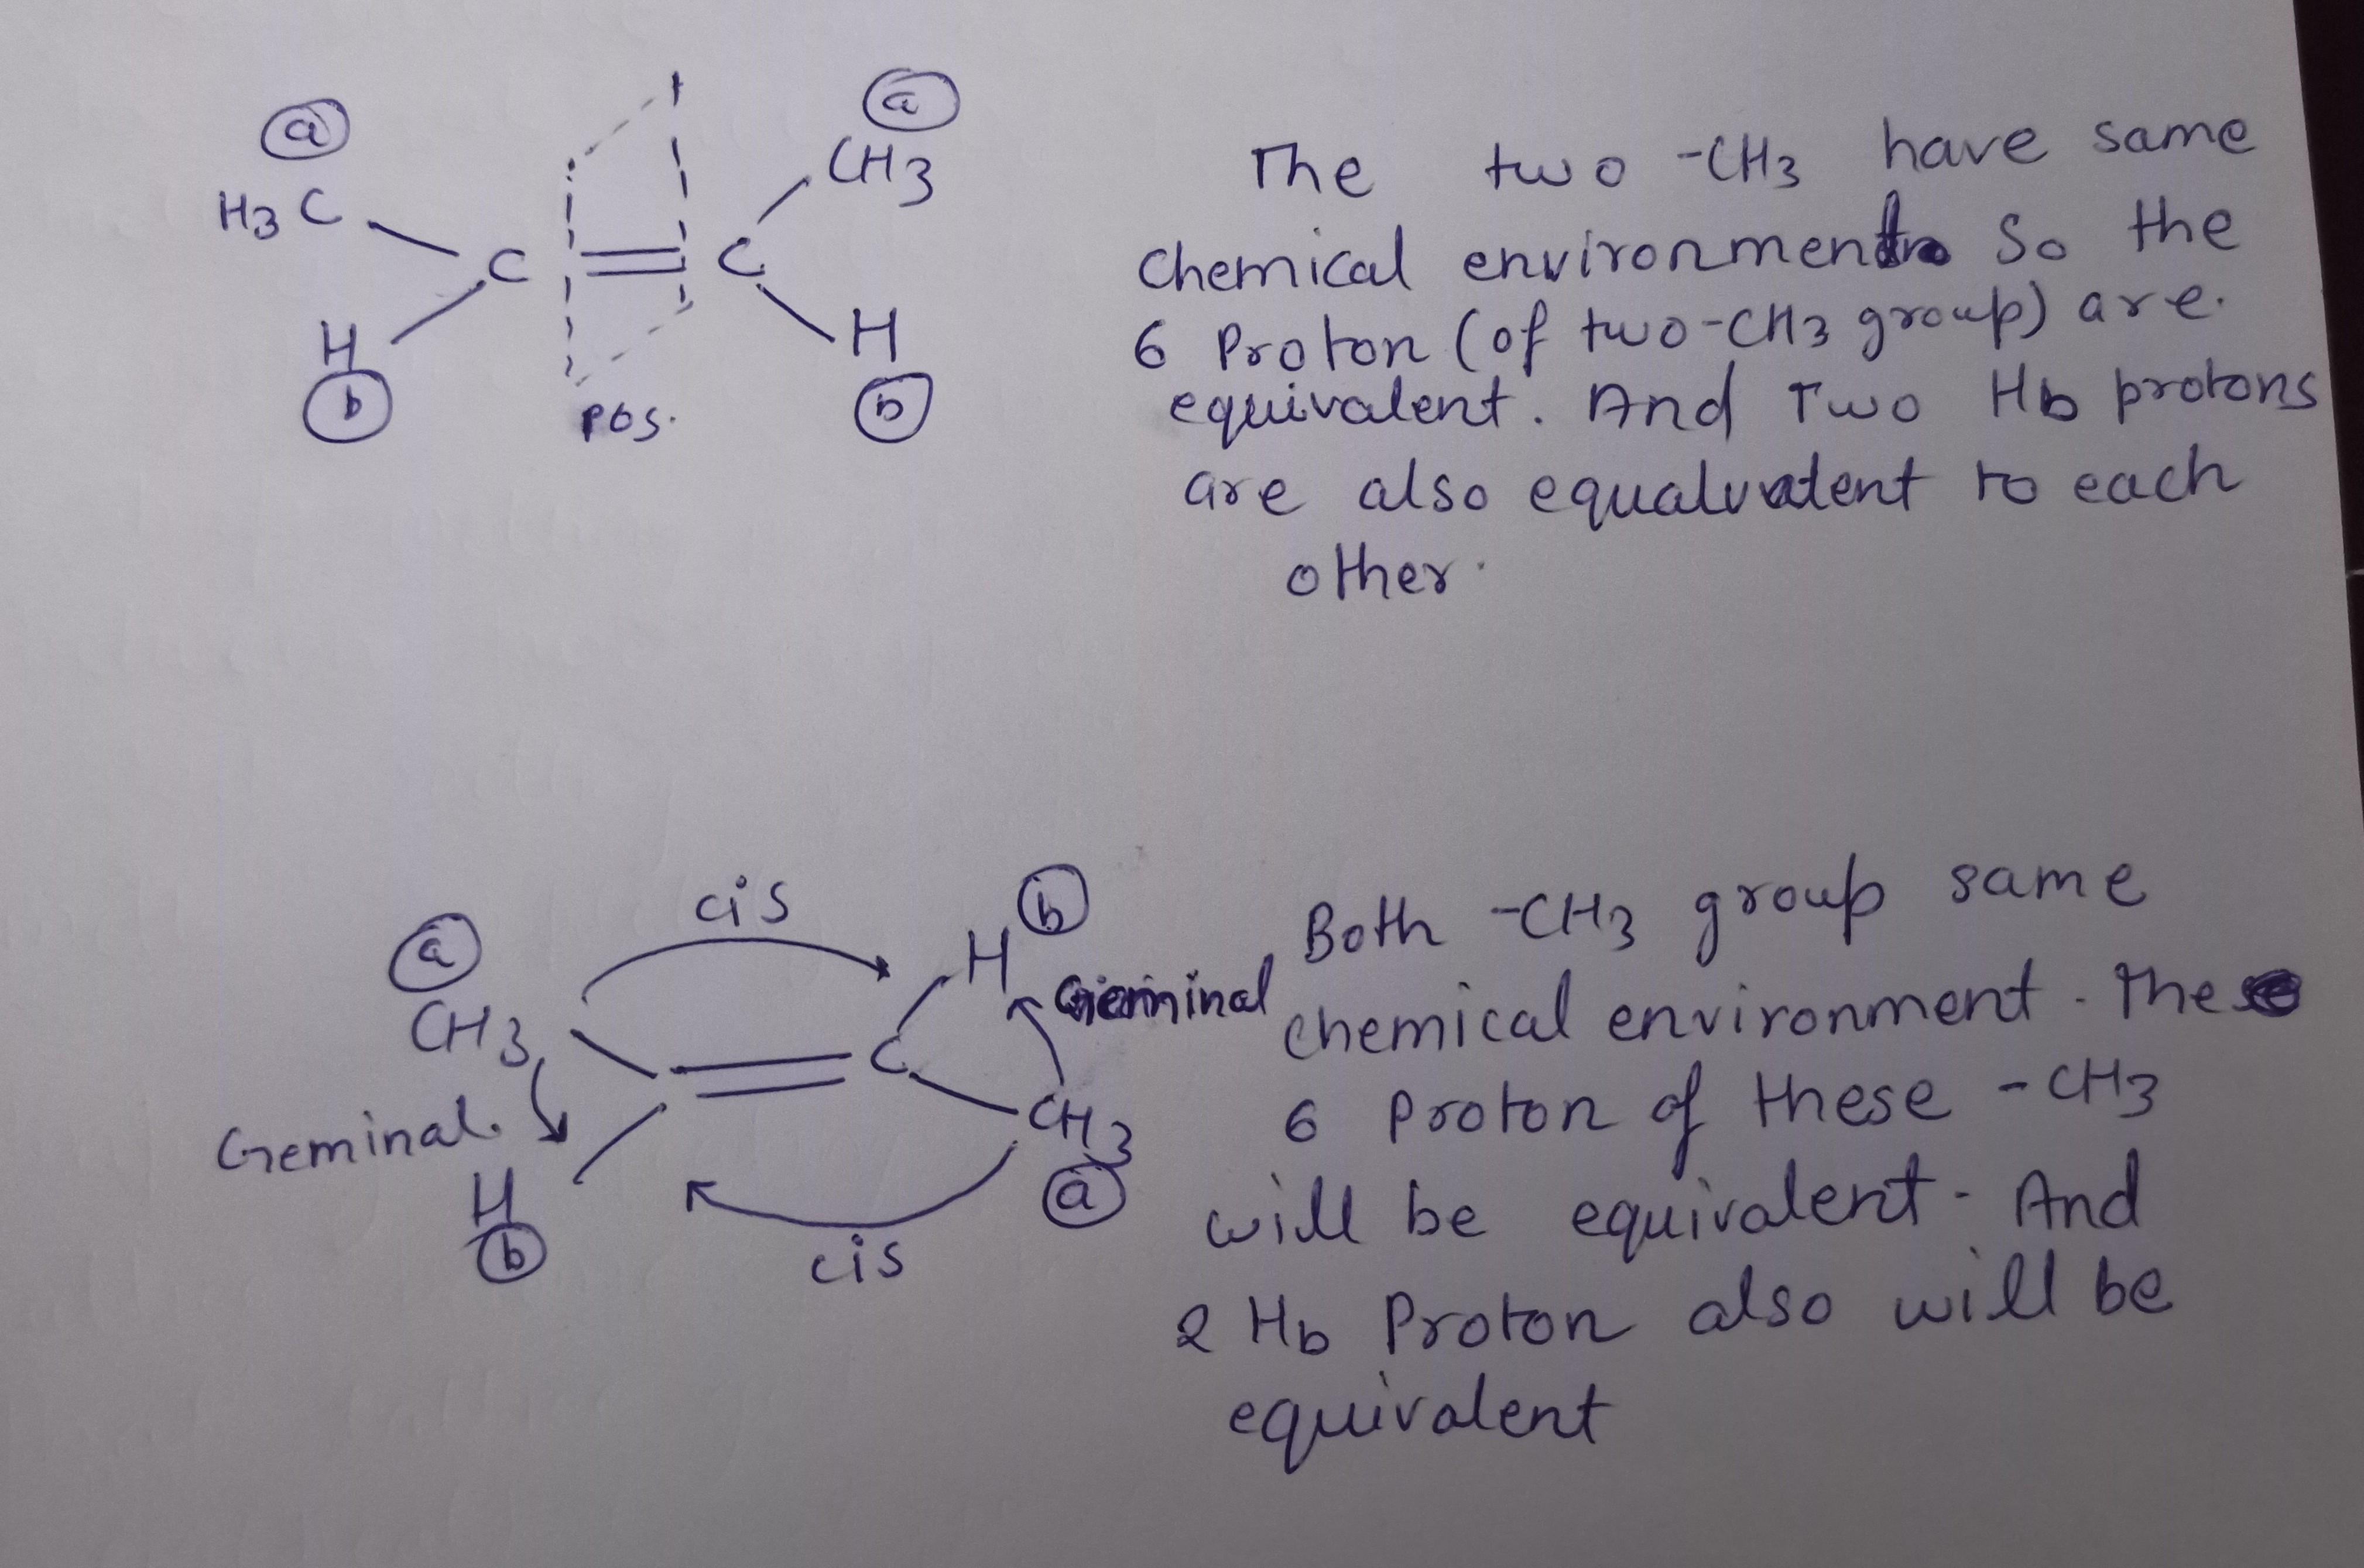 a
a
H3C
CH3
C = C
H
H
b
b
POS.
The two -CH3 have same
chemical environment So the
6 Proton (of two-CH3 group) are.
equivalent. And Two Hb protons
are also equalvatent to each
other.
cis
a
b
CH3
H
Geminal
C
Geminal.
CH3
H
a
b
cis
Both -CH3 group same
chemical environment. The
6 Proton of these -CH3
will be equivalent. And
2 Hb Proton also will be
equivalent